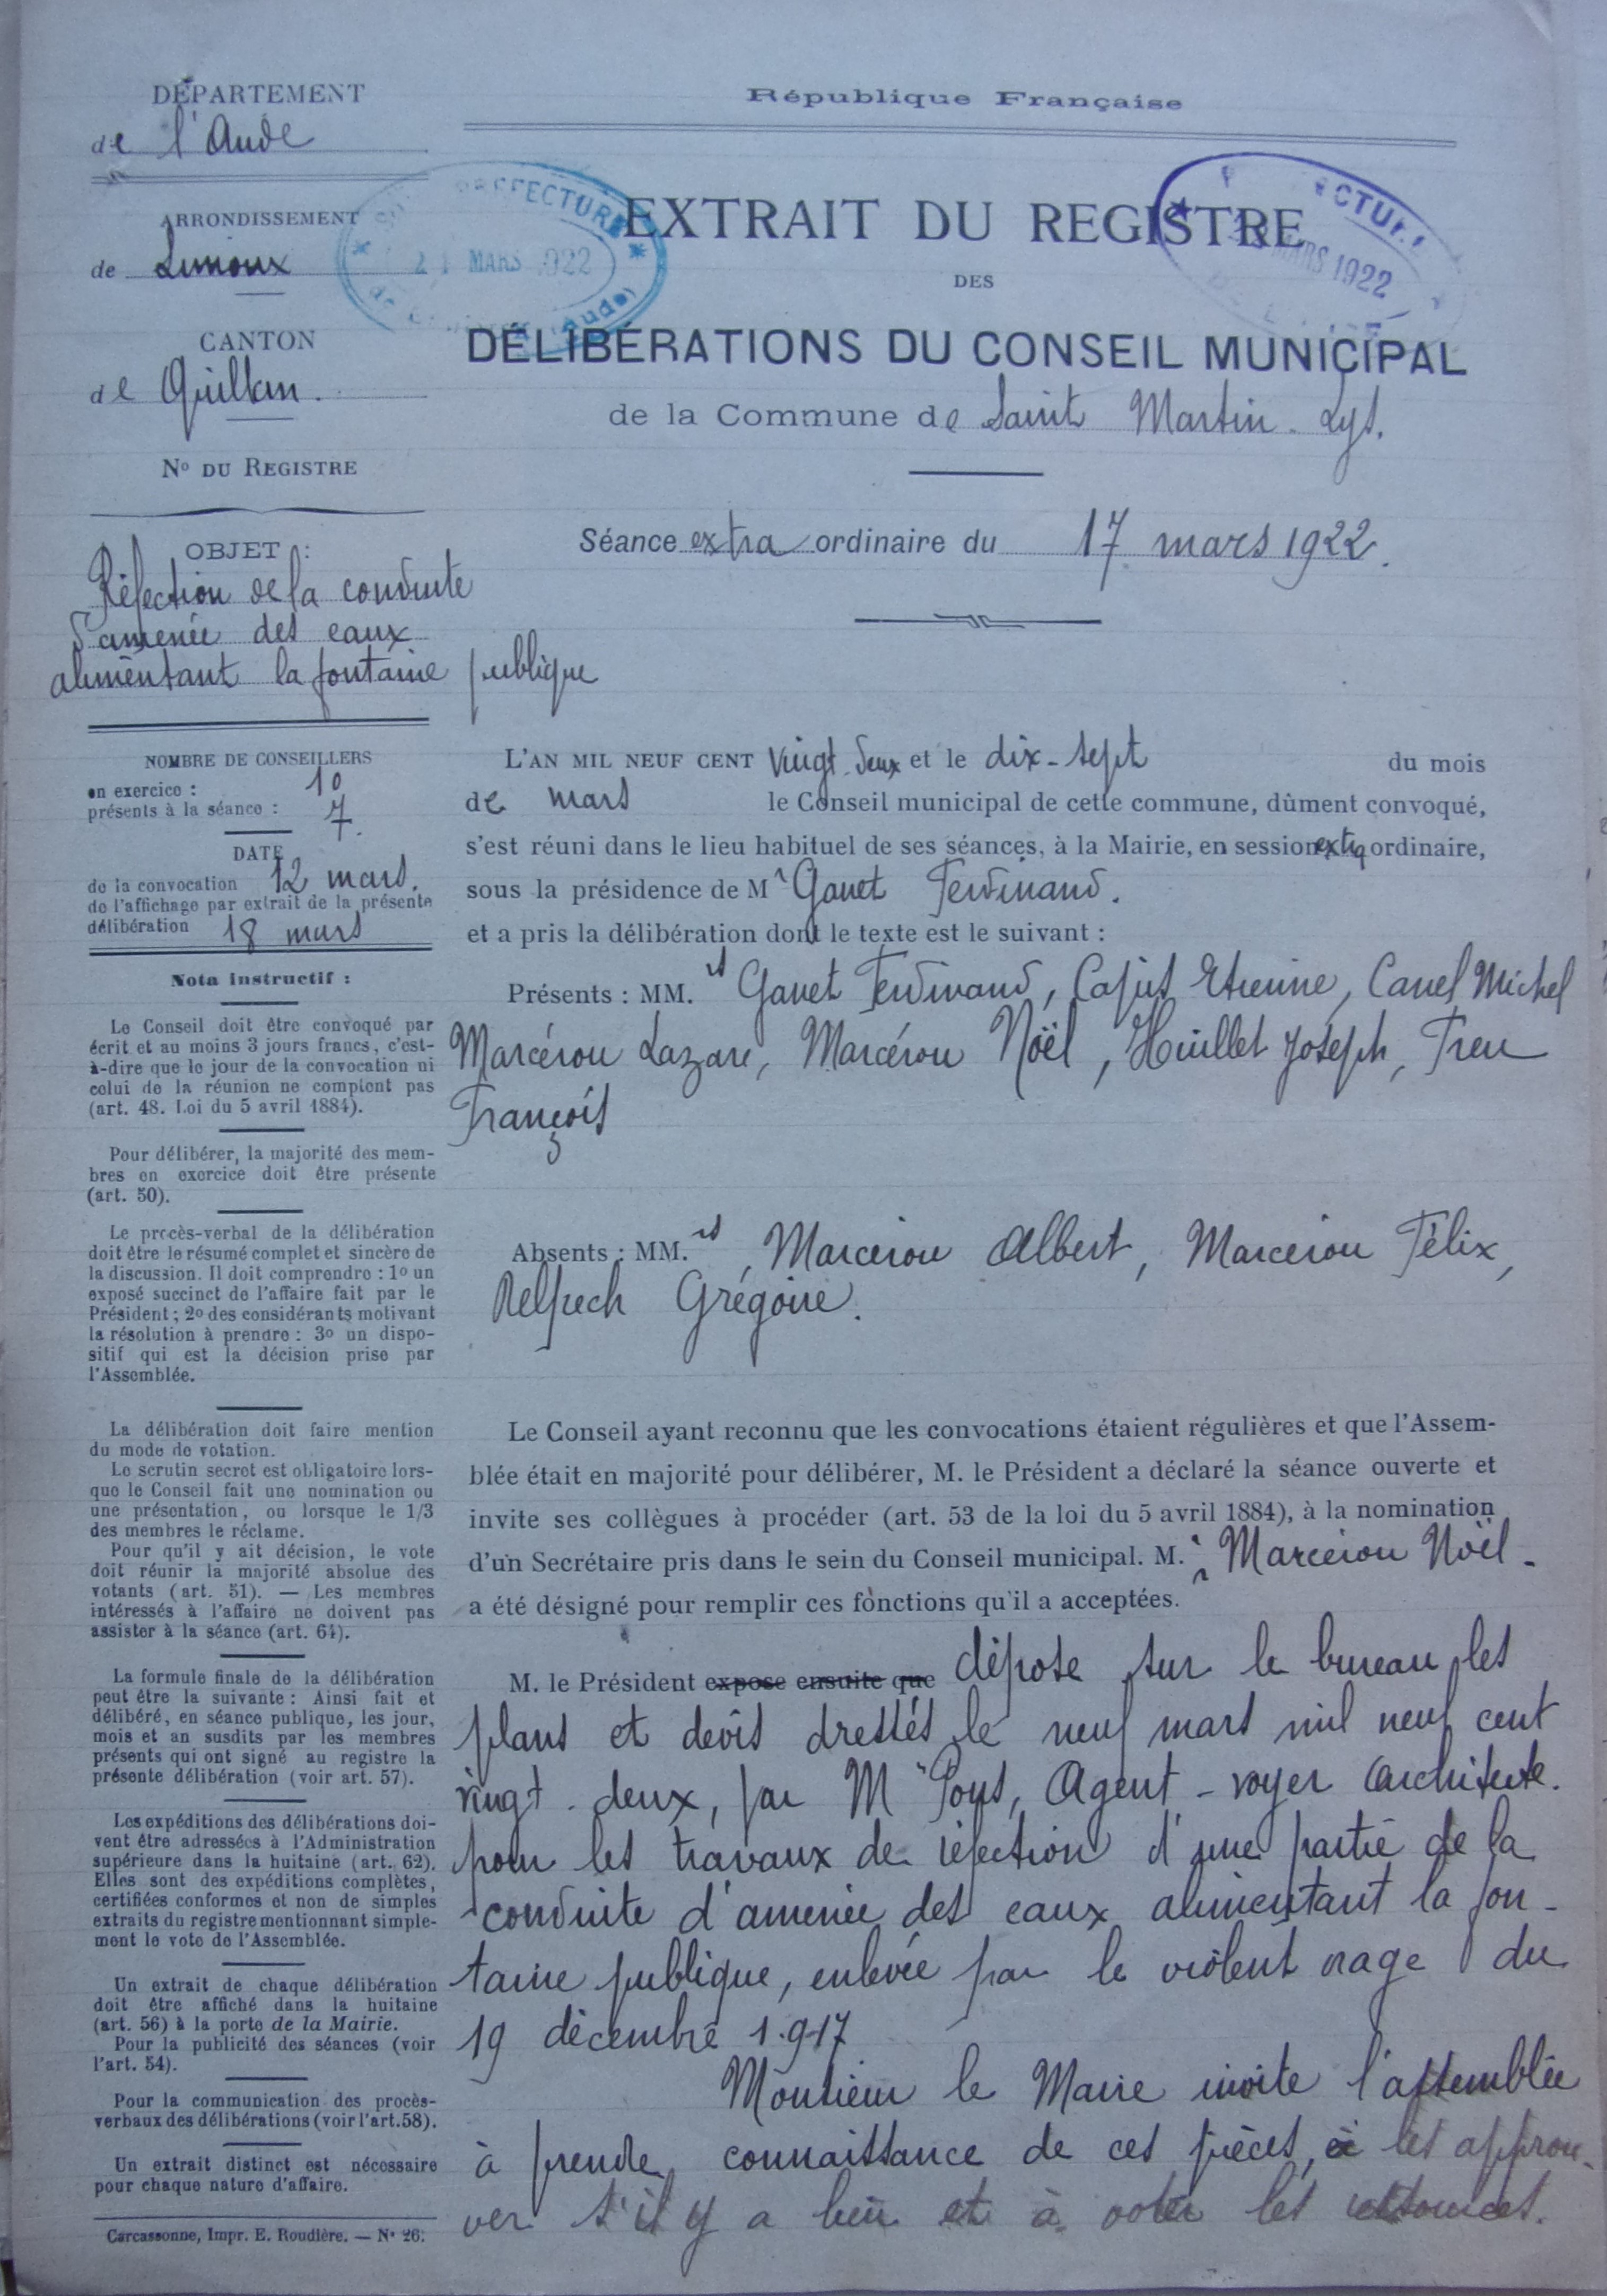 DÉPARTEMENT
de l'Aude
ARRONDISSEMENT
de Limoux
CANTON
de Quillan.
No DU REGISTRE
OBJET :
Réfection de la conduite
d'amenée des eaux
alimentant la fontaine publique
NOMBRE DE CONSEILLERS
en exercice : 10
présents à la séance : 7.
DATE
de la convocation 12 mars.
de l'affichage par extrait de la présente
délibération 18 mars
Nota instructif :
Le Conseil doit être convoqué par
écrit et au moins 3 jours francs, c'est-
à-dire que le jour de la convocation ni
celui de la réunion ne comptent pas
(art. 48. Loi du 5 avril 1884).
Pour délibérer, la majorité des mem-
bres en exercice doit être présente
(art. 50).
Le procès-verbal de la délibération
doit être le résumé complet et sincère de
la discussion. Il doit comprendre : 1o un
exposé succinct de l'affaire fait par le
Président ; 2o des considérants motivant
la résolution à prendre : 3o un dispo-
sitif qui est la décision prise par
l'Assemblée.
La délibération doit faire mention
du mode de votation.
Le scrutin secret est obligatoire lors-
que le Conseil fait une nomination ou
une présentation, ou lorsque le 1/3
des membres le réclame.
Pour qu'il y ait décision, le vote
doit réunir la majorité absolue des
votants (art. 51). — Les membres
intéressés à l'affaire ne doivent pas
assister à la séance (art. 64).
La formule finale de la délibération
peut être la suivante : Ainsi fait et
délibéré, en séance publique, les jour,
mois et an susdits par les membres
présents qui ont signé au registre la
présente délibération (voir art. 57).
Les expéditions des délibérations doi-
vent être adressées à l'Administration
supérieure dans la huitaine (art. 62).
Elles sont des expéditions complètes,
certifiées conformes et non de simples
extraits du registre mentionnant simple-
ment le vote de l'Assemblée.
Un extrait de chaque délibération
doit être affiché dans la huitaine
(art. 56) à la porte de la Mairie.
Pour la publicité des séances (voir
l'art. 54).
Pour la communication des procès-
verbaux des délibérations (voir l'art. 58).
Un extrait distinct est nécessaire
pour chaque nature d'affaire.
Carcassonne, Impr. E. Roudière. — No 26.
République Française
EXTRAIT DU REGISTRE
DES
DÉLIBÉRATIONS DU CONSEIL MUNICIPAL
de la Commune de Saint Martin-Lys.
MARS 1922
MARS 1922
Séance extra ordinaire du 17 mars 1922.
L'AN MIL NEUF CENT vingt-deux et le dix-sept du mois
de mars le Conseil municipal de cette commune, dûment convoqué,
s'est réuni dans le lieu habituel de ses séances, à la Mairie, en session extra ordinaire,
sous la présidence de Mr Gauet Ferdinand.
et a pris la délibération dont le texte est le suivant :
Présents : MM.rs Gauet Ferdinand, Cajus Etienne, Canel Michel
Marcérou Lazare, Marcérou Noël, Huillet Joseph, Treu
François
Absents : MM.rs, Marcerou Albert, Marcerou Félix,
Delpech Grégoire.
Le Conseil ayant reconnu que les convocations étaient régulières et que l'Assem-
blée était en majorité pour délibérer, M. le Président a déclaré la séance ouverte et
invite ses collègues à procéder (art. 53 de la loi du 5 avril 1884), à la nomination
d'un Secrétaire pris dans le sein du Conseil municipal. M.r Marcerou Noël.
a été désigné pour remplir ces fonctions qu'il a acceptées.
M. le Président expose ensuite que dépose sur le bureau les
plans et devis dressés le neuf mars mil neuf cent
vingt-deux, par Mr Pous, Agent-voyer Architecte.
pour les travaux de réfection d'une partie de la
conduite d'amenée des eaux alimentant la fon-
taine publique, enlevée par le violent orage du
19 décembre 1.917
Monsieur le Maire invite l'assemblée
à prendre connaissance de ces pièces, à les approu-
ver s'il y a lieu et à voter les ressources.